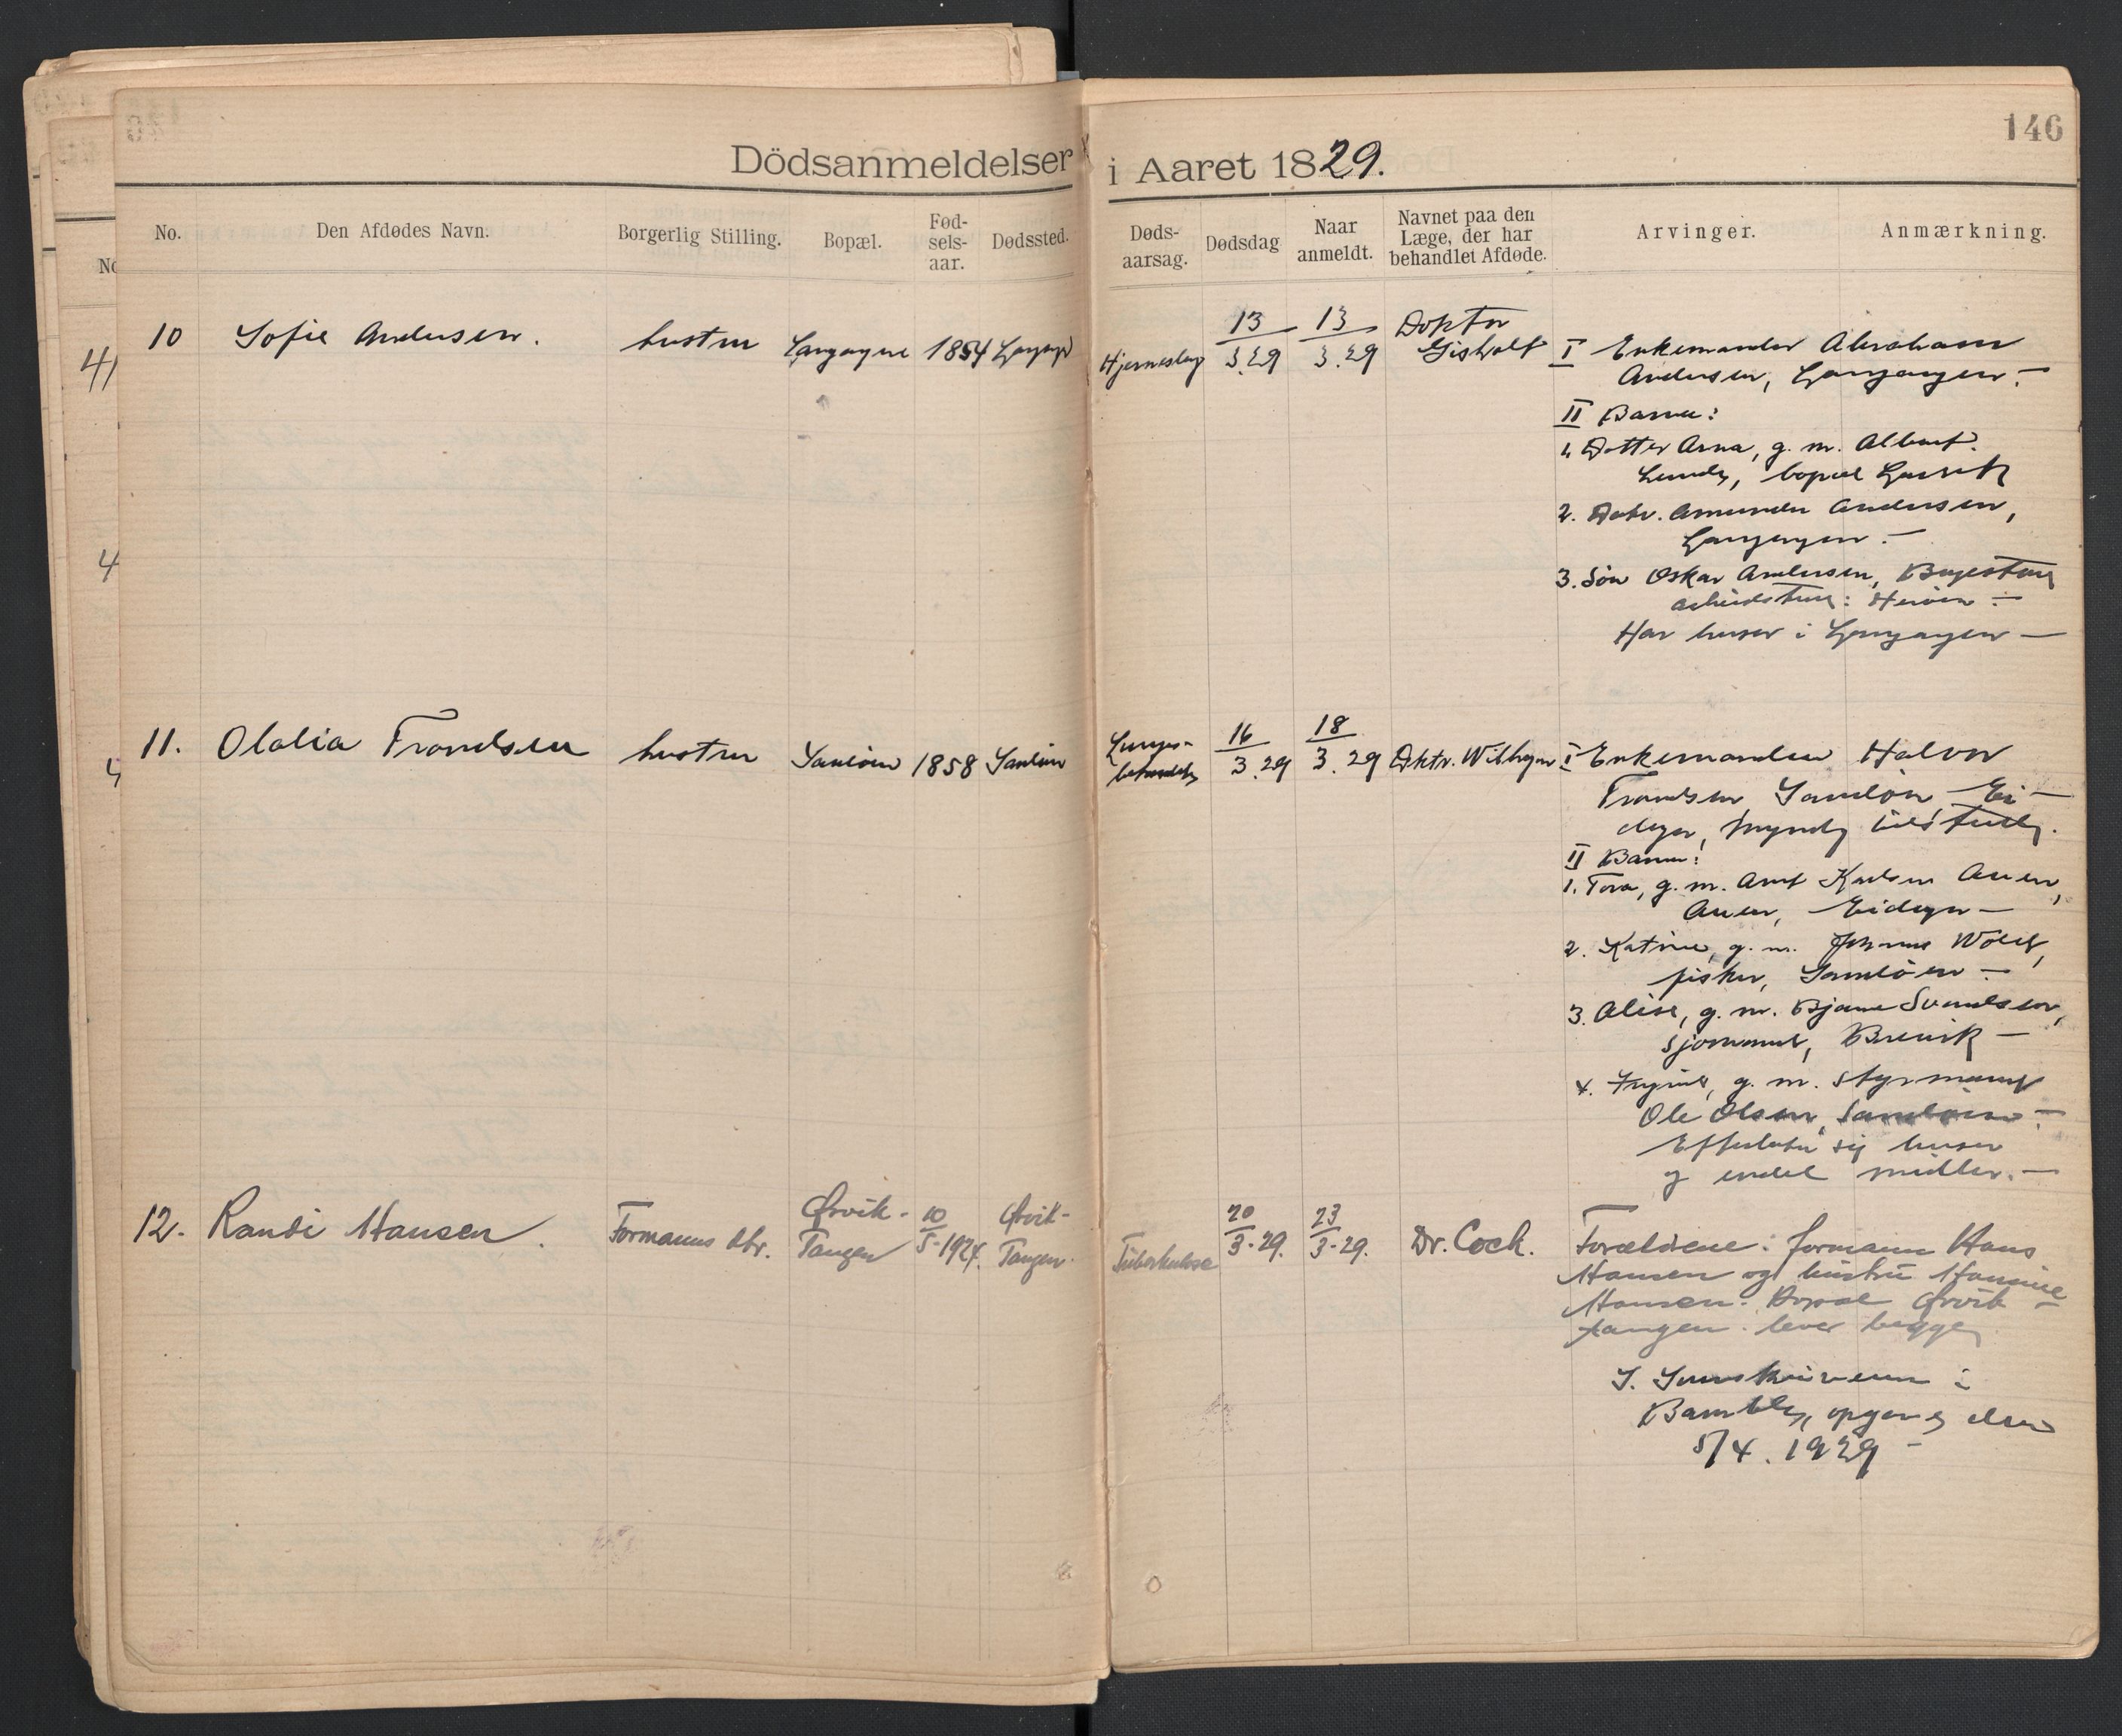 146
Dödsanmeldelser i Aaret 1829.
No. Den Afdødes Navn. Borgerlig Stilling. Bopæl. Fød-sels-aar. Dødssted. Døds-aarsag. Dødsdag Naar anmeldt. Navnet paa den Læge, der har behandlet Afdøde. Arvinger. Anmærkning.
10 Sofie Andersen. hustru Langangen 1854 Hjerneslag 13/3.29 13/3.29 Doktor
I Enkemanden Abraham
Andersen, Langangen.
II Barn:
1. Datter Anna, g. m. Albert
Lund, bopæl
2. Datr. Andersen,
Langangen.
3. Søn Oskar Andersen,
Herøen
Har huser i Langangen
11. Olalia Frandsen hustru Sandøen 1858 Sandøen 16/3.29 18/3.29 Dktr.
I Enkemanden Halvor
Frandsen Sandøen Ei-
danger,
II Barn:
1. Tora, g. m. Karlsen Auen,
Auen, Eidanger
2. Katrine, g. m. Johannes
fisker, Sandøen
3. Alise, g. m. Bjarne Svendsen,
sjømand, Brevik
4. g. m. styrmand
Ole Olsen, Sandøen
Efterlater sig huser
og endel midler.
12. Randi Hansen. Formanns dtr. Ørvik-Tangen 10/5-1924. Ørvik-Tangen. Tuberkulose 20/3-29. 23/3-29. Dr. Cock.
Forældrene: formann Hans
Hansen og hustru Hansine
Hansen. Bopæl Ørvik-
tangen. lever begge
S. Sorenskriveren i
Bamble, opgave den
5/4. 1929